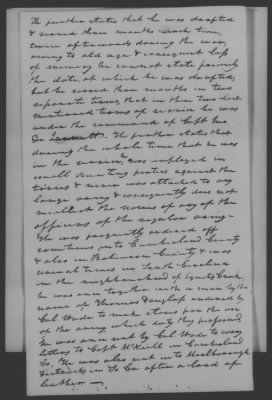 He further states that he was drafted
& served three months each time,
twice afterwards during the war,
owing to old age & consequent loss
of memory he cannot state precisely
the date at which he was drafted,
but he served three months in two
separate times, that in these two last
mentioned terms of service he was
under the command of Capt
He further states that
during the whole time that he was
in the service, he was employed in
small scouting parties against the
tories & never was attached to any
large army & consequently does not
recollect the names of any of the
officers of the regular army
He was frequently ordered off
sometimes into Cumberland County
& also in Robinson County & on
several times in South Carolina
in the neighbourhood of Creek
he was once together with a man by the
name of Thomas Douglass ordered by
Col Wade to make shoes for the use
of the army which duty they performed,
he was once sent by Col Wade to carry
letters to Capt McNeill in Cumberland
Co, He was also sent into Marlborough
District in So Ca after a load of
leather